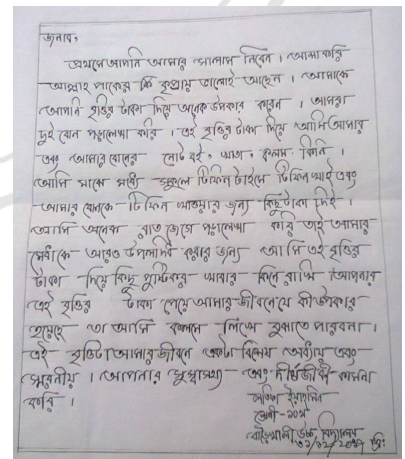 জনাব,
প্রথমে আপনি আমার সালাম নিবেন। আশাকরি
আল্লাহ পাকের কৃপায় ভালোই আছেন। আমাকে
আপনি বৃত্তির টাকা দিয়ে অনেক উপকার করেন। আমরা
দুই বোন পড়ালেখা করি। এই বৃত্তির টাকা দিয়ে আমি আমার
এবং আমার বোনের নোট বই, খাতা, কলম কিনি।
আমি মাঝে মধ্যে স্কুলে টিফিন টাইমে টিফিন খাই এবং
আমার বোনকে টিফিন খাওয়ার জন্য কিছু টাকা দিই।
আমি অনেক রাত জেগে পড়ালেখা করি তাই আমার
মেধাকে আরও করার জন্য আমি এই বৃত্তির
টাকা দিয়ে কিছু পুষ্টিকর খাবার কিনে রাখি। আপনার
এই বৃত্তির টাকা পেয়ে আমার জীবনে যে কী উপকার
হয়েছে তা আমি কলমে লিখে বুঝাতে পারবনা।
এই বৃত্তিটা আমার জীবনে একটা বিশেষ অধ্যায় এবং
স্মরনীয়। আপনার সুস্বাস্থ্য এবং দীর্ঘজীবী কামনা
করি।
ইয়াছমিন
শ্রেণী-১০ম
উচ্চ বিদ্যালয়